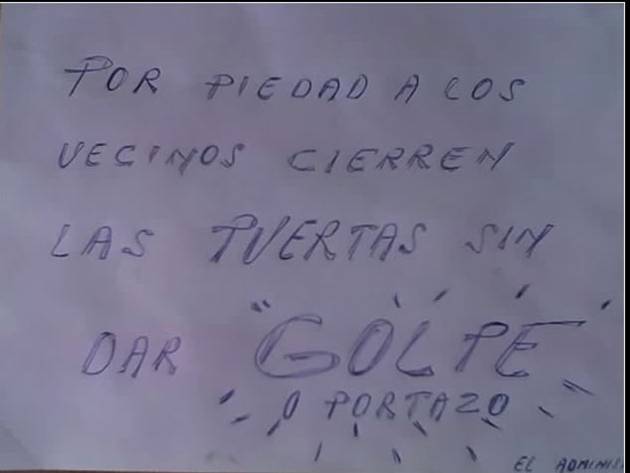 POR PIEDAD A LOS
VECINOS CIERREN
LAS PUERTAS SIN
DAR "GOLPE"
O PORTAZO
EL